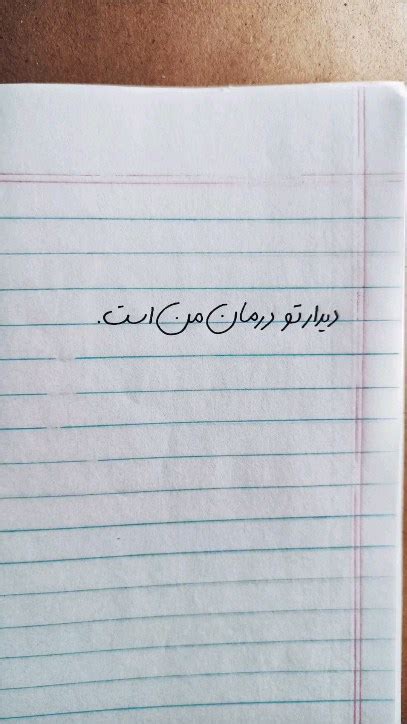 دیدار تو درمان من است.